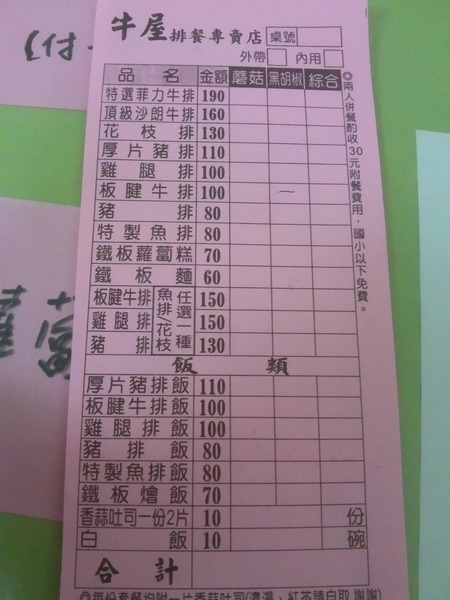 牛屋排餐專賣店 桌號
外帶 內用
品名 金額 蘑菇 黑胡椒 綜合
特選菲力牛排 190
頂級沙朗牛排 160
花枝排 130
厚片豬排 110
雞腿排 100
板腱牛排 100 一
豬排 80
特製魚排 80
鐵板蘿蔔糕 70
鐵板麵 60
板腱牛排 魚排/花枝 任選一種 150
雞腿排 150
豬排 130
飯類
厚片豬排飯 110
板腱牛排飯 100
雞腿排飯 100
豬排飯 80
特製魚排飯 80
鐵板燴飯 70
香蒜吐司一份2片 10 份
白飯 10 碗
合計
◎每份套餐均附一片香蒜吐司(濃湯、紅茶請自取 謝謝)
◎兩人併餐酌收30元附餐費用,國小以下免費。
(付